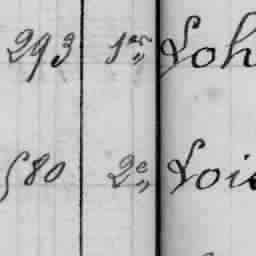 293 1er Loh
580 2e Lois